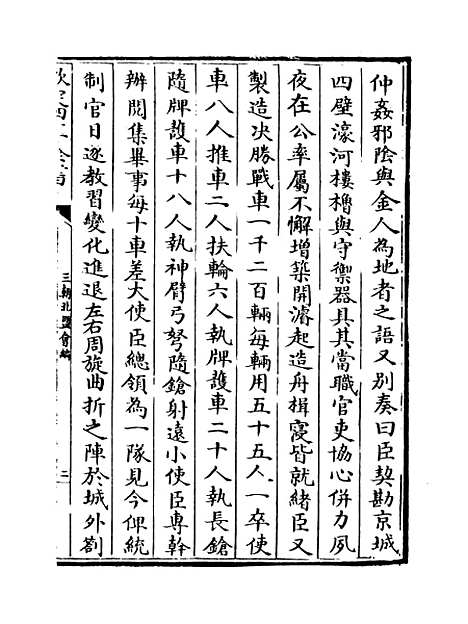 仲姦邪陰與金人為地者之語又別奏曰臣契勘京城
四壁濠河樓櫓與守禦器具其當職官吏協心併力夙
夜在公率屬不懈增築開濬起造舟楫寖皆就緒臣又
製造决勝戰車一千二百輛每輛用五十五人一卒使
車八人推車二人扶輪六人執牌護車二十人執長鎗
隨牌護車十八人執神臂弓弩隨鎗射遠小使臣專幹
辦閱集畢事每十車差大使臣總領為一隊見今俾統
制官日逐教習變化進退左右周旋曲折之陣於城外劄
三朝北盟會編